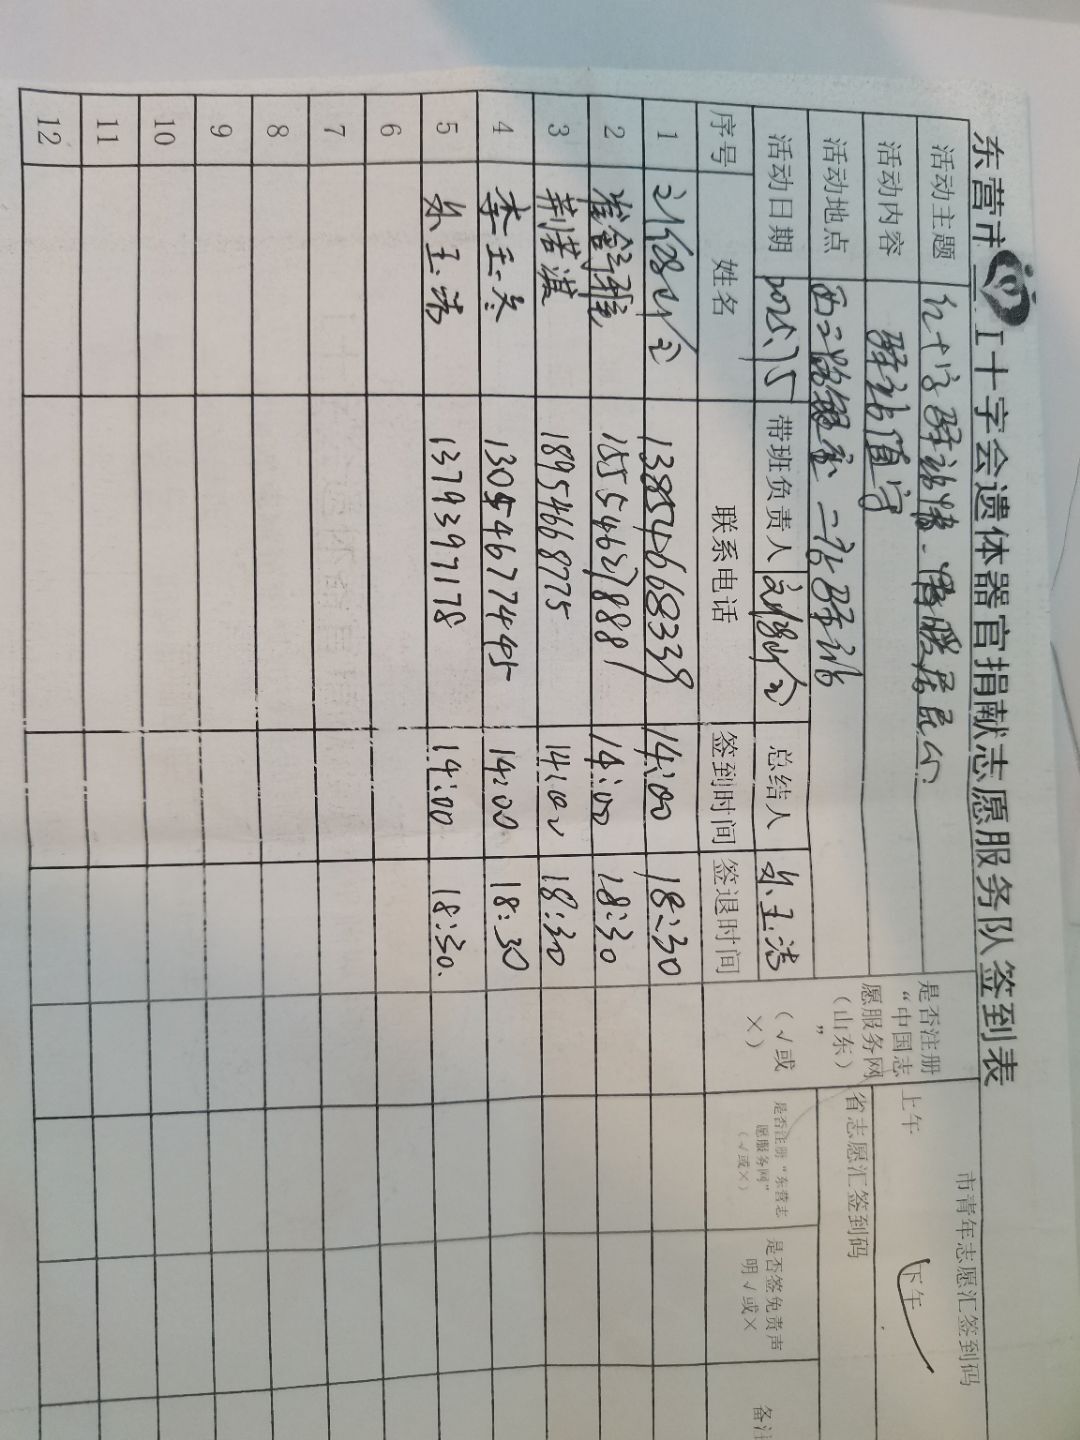 东营市红十字会遗体器官捐献志愿服务队签到表
活动主题 红十字驿站情·温暖居民心
市青年志愿汇签到码
活动内容 驿站值守
上午 下午 ✓
活动地点 西二路银座 驿站
省志愿汇签到码
活动日期 带班负责人 总结人
是否注册“中国志愿服务网（山东）”（√或×）
是否注册“东营志愿服务网”（√或×）
是否签免责声明√或×
备注
序号 姓名 联系电话 签到时间 签退时间
1 13854668339 14:00 18:30
2 15554627888 14:00 18:30
3 荆洪滨 18954668775 14:00 18:30
4 李玉冬 13054677445 14:00 18:30
5 玉洁 1379397178 14:00 18:30.
6
7
8
9
10
11
12